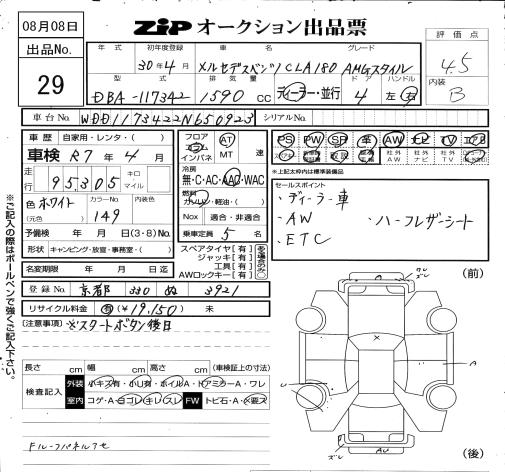 08月08日
ZiP オークション出品票
出品No.
29
年式 初年度登録 車名 グレード
30年4月 メルセデスベンツ CLA180 AMGスタイル
型式 排気量 ドア ハンドル
DBA-117342 1590 cc ディーラー・並行 4 左・右
評価点
4.5
内装
B
車台No. WDD1173422N650923 シリアルNo.
車歴 自家用・レンタ・( )
車検 R7年4月
走行 95,305 キロ マイル
色 ホワイト カラーNo. 内装色
(元色) 149
予備検 年 月 日(3・8)No.
形状 キャンピング・放宣・事務室・( )
名変期限 年 月 日迄
フロア コラム インパネ AT MT 速
冷房 無・C・AC・AAC・WAC
燃料 ガソリン・軽油・( )
Nox 適合・非適合
乗車定員 5 名
スペアタイヤ[有]
ジャッキ[有]
工具[有]
AWロックキー[有]
ある場合のみ○
PS PW SR 革 AW ナビ TV エアB
社外AW 社外ナビ 社外TV
※上記太枠内は標準装備品
セールスポイント
・ディーラー車
・AW ・ハーフレザーシート
・ETC
登録No. 京都 330 ぬ 3921
リサイクル料金 有(¥19,150) 未
(注意事項) ※スタートボタン後日
※ご記入の際はボールペンで強くご記入下さい。
長さ cm 幅 cm 高さ cm (車検証上の寸法)
検査記入 外装 小キズ有・小凹有・ホイルA・ドアミラーA・ワレ
室内 コゲ・A・ヨゴレ・キレ・スレ FW トビ石・A・X要ス
(前)
A
X
U
A
ズレ
AU
(後)